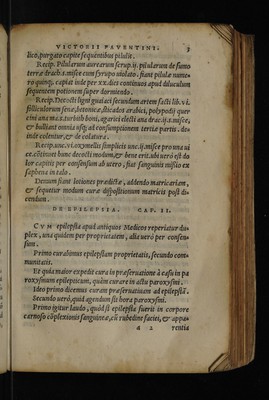 VICTORII FAVENTINI. 3
lico, purgato capite sequentibus pilulis.
Recip. Pilularum aurearum scrup.ij. pilularum de fumo
terræ drach.s. misce cum syrupo uiolato. fiant pilulæ nume
ro quinq; capiat inde per xx. dies continuos apud diluculum
sequentem potionem super dormiendo.
Recip. Decocti ligni guaiaci secundum artem facti lib. vi.
folliculorum senæ, betonicæ, sticados arabici, polypodij quer
cini ana unc.s. turbith boni, agarici electi ana drac.ij.s. misce,
& bulliant omnia usq; ad consumptionem tertiæ partis. de
inde colentur, & de colatura.
Recip. unc. vi. oxymellis simplicis unc.ij. misce pro una ui
ce. cōtinuet hunc decocti modum, & bene erit. ubi uerò est do
lor capitis per consensum ab utero, fiat sanguinis missio ex
saphena in talo.
Demum fiant lotiones prædictæ, addendo matricariam,
& sequatur modum curæ dispositionum matricis post di-
cendum.
DE EPILEPSIA. CAP. II.
CVM epilepsia apud antiquos Medicos reperiatur du-
plex, una quidem per proprietatem, alia uerò per consen-
sum.
Primo curabimus epilepsiam proprietatis, secundo com-
munitatis.
Et quia maior expedit cura in præseruatione à casu in pa
roxysmum epilepticum, quàm curare in actu paroxysmi.
Ideo primo dicemus curam præseruatiuam ad epilepsiā.
Secundo uerò, quid agendum sit hora paroxysmi.
Primo igitur laudo, quòd si epilepsia fuerit in corpore
carnoso cōplexionis sanguineæ, cū rubedine faciei, & appa-
a 2 rentia